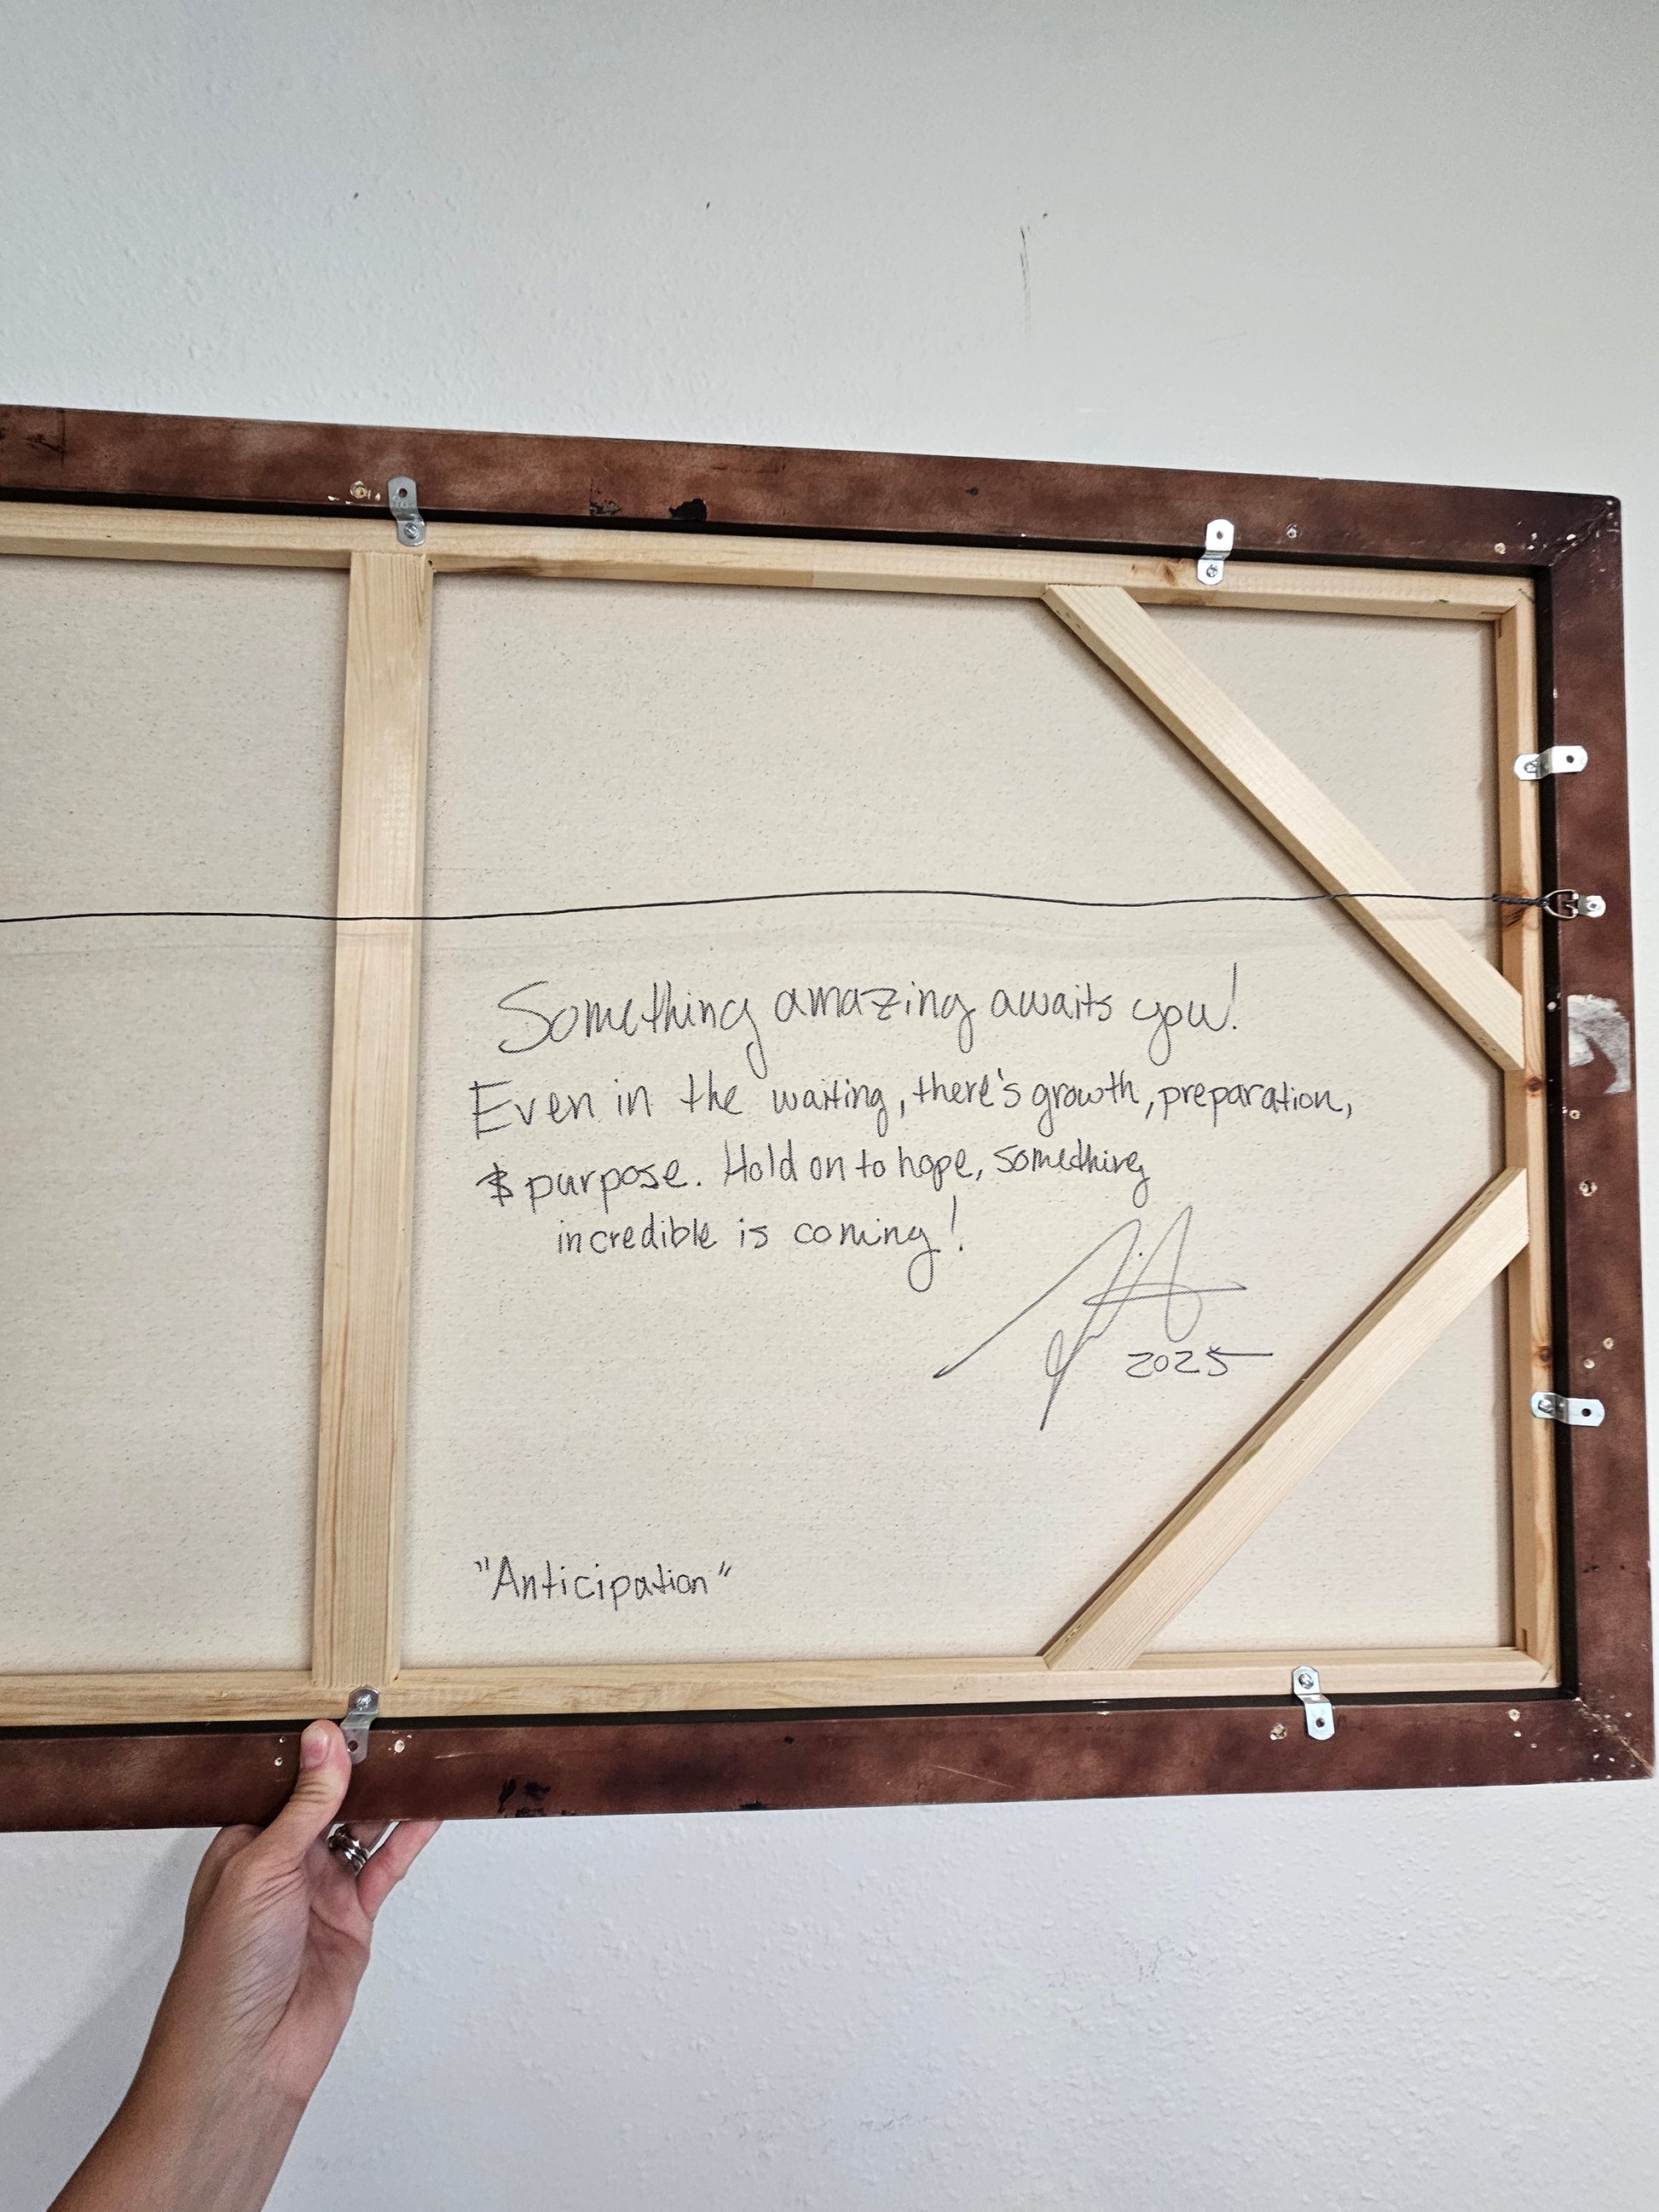 Something amazing awaits you!
Even in the waiting, there's growth, preparation,
& purpose. Hold on to hope, something
incredible is coming!
2025
"Anticipation"